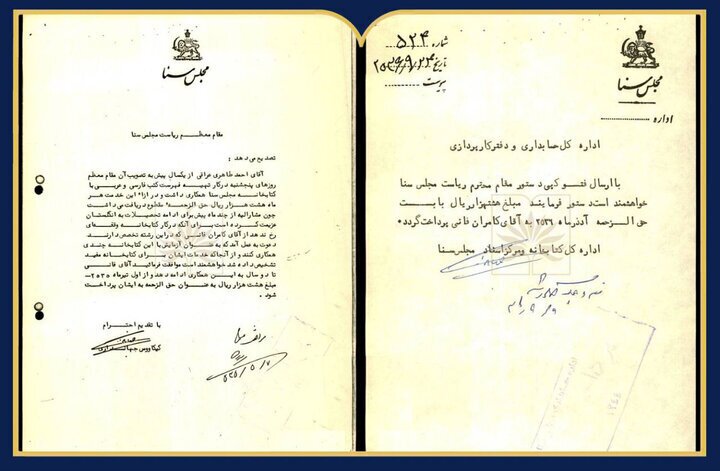 مجلس سنا
شماره ۵۲۴
تاریخ ۲۵۳۶/۹/۲۴
پیوست
اداره
اداره کل حسابداری و دفتر کارپردازی
با ارسال فتوکپی دستور مقام محترم ریاست مجلس سنا
خواهشمند است دستور فرمایند مبلغ هفتهزار ریال بابت
حق الزحمه آذرماه ۲۵۳۶ به آقای کامران فانی پرداخت گردد.
اداره کل کتابخانه و مرکز اسناد مجلس سنا
مجلس سنا
مقام معظم ریاست مجلس سنا
تصدیع می دهد:
آقای احمد طاهری عراقی از یکسال پیش به تصویب آن مقام معظم
روزهای پنجشنبه در کار تهیه فهرست کتب فارسی و عربی با
کتابخانه مجلس سنا همکاری داشت و در ازاء این خدمت هر
ماه هشت هزار ریال حق الزحمه مقطوع دریافت می داشت
چون مشارالیه از چند ماه پیش برای ادامه تحصیلات به انگلستان
عزیمت کرده است برای آنکه در کار کتابخانه وقفه‌ای
رخ ندهد از آقای کامران فانی که در این رشته تخصص دارند
دعوت به عمل آمد که به عنوان آزمایش با این کتابخانه چندی
همکاری کنند و از آنجا که خدمات ایشان برای کتابخانه مفید
تشخیص داده شد خواهشمند است موافقت فرمائید آقای فانی
تا دو سال به این همکاری ادامه دهد و از اول تیرماه ۲۵۳۵
مبلغ هشت هزار ریال به عنوان حق الزحمه به ایشان پرداخت
شود.
با تقدیم احترام
کیکاووس جهانداری